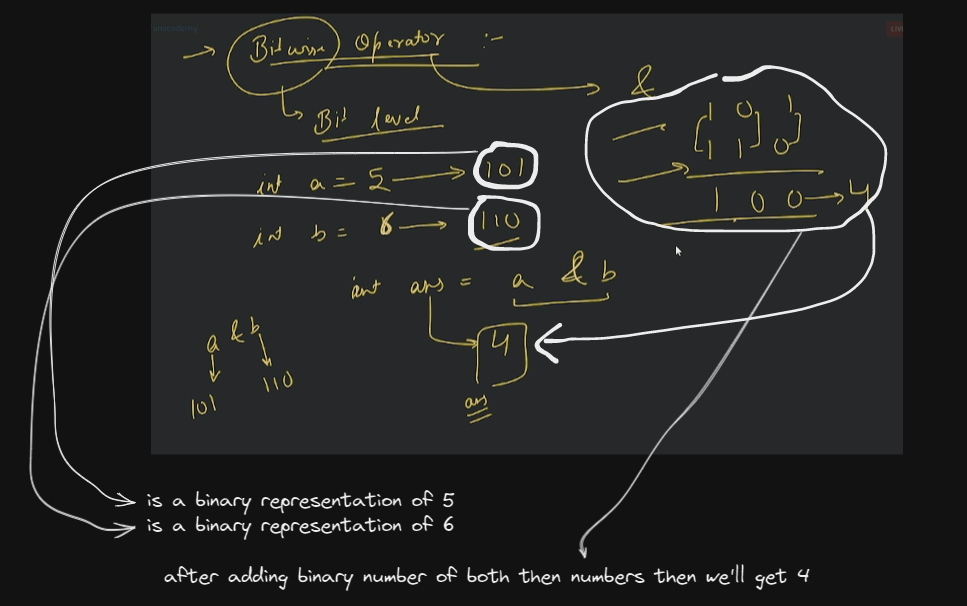 unacademy
LIVE
→ Bitwise Operator :-
&
↳ Bit level
1 0 1
1 1 0
1 0 0 → 4
int a = 5 → 101
int b = 6 → 110
int ans = a & b
4
ans
a & b
101 110
is a binary representation of 5
is a binary representation of 6
after adding binary number of both then numbers then we'll get 4